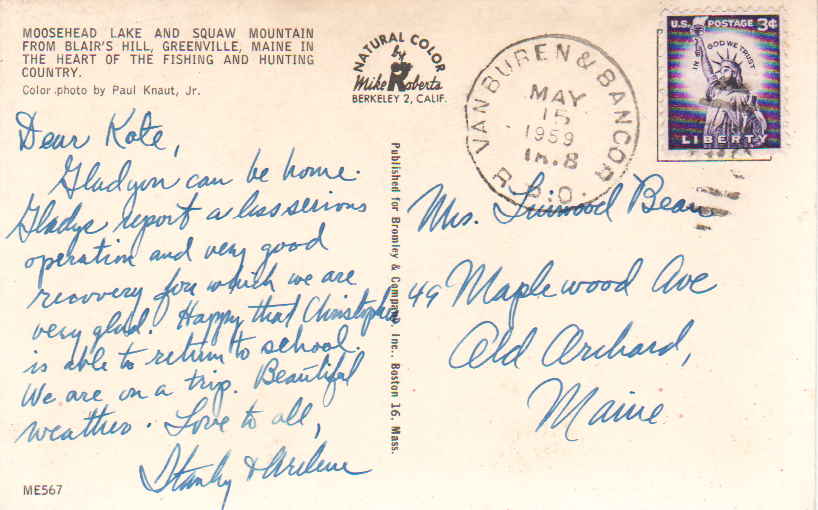 MOOSEHEAD LAKE AND SQUAW MOUNTAIN
FROM BLAIR'S HILL, GREENVILLE, MAINE IN
THE HEART OF THE FISHING AND HUNTING
COUNTRY.
Color photo by Paul Knaut, Jr.
NATURAL COLOR
by
Mike Roberts
BERKELEY 2, CALIF.
VAN BUREN & BANGOR
MAY
15
1959
R.P.O.
U.S. POSTAGE 3¢
IN GOD WE TRUST
LIBERTY
Dear Kate,
Glad you can be home.
Gladys report a less serious
operation and very good
recovery for which we are
very glad. Happy that Christopher
is able to return to school.
We are on a trip. Beautiful
weather. Love to all,
Stanley & Arlene
Published for Bromley & Company, Inc., Boston 16, Mass.
Mrs. Linwood Bean
49 Maplewood Ave
Old Orchard,
Maine
ME567